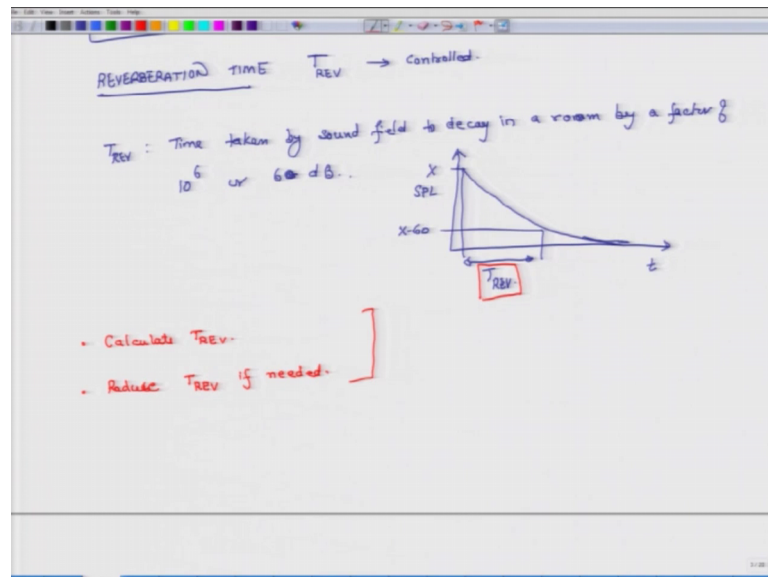 File Edit View Insert Actions Tools Help
REVERBERATION TIME T_REV → Controlled.
T_REV : Time taken by sound field to decay in a room by a factor of
10^6 or 60 dB.
X
SPL
X-60
t
T_REV.
• Calculate T_REV.
• Reduse T_REV if needed.